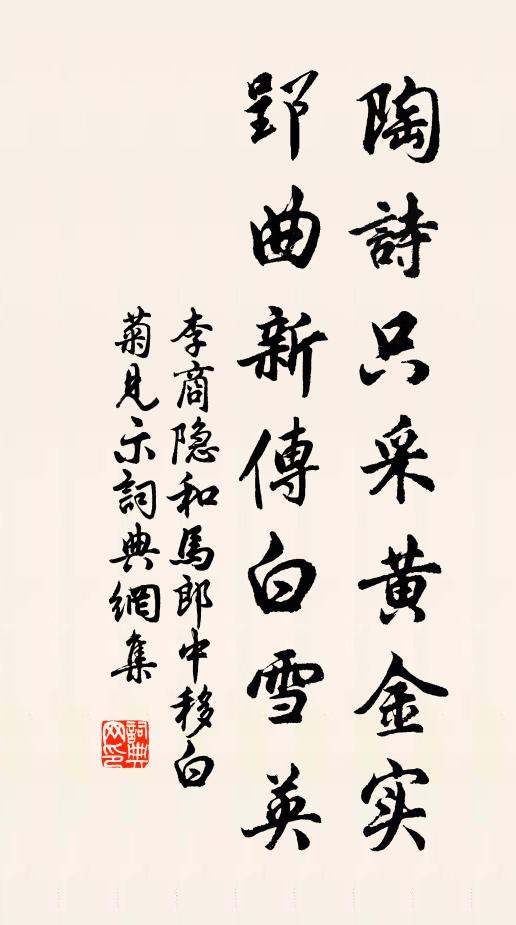 陶詩只采黄金实
郢曲新傳白雪英
李商隐和馬郎中移白
菊見示詞典網集